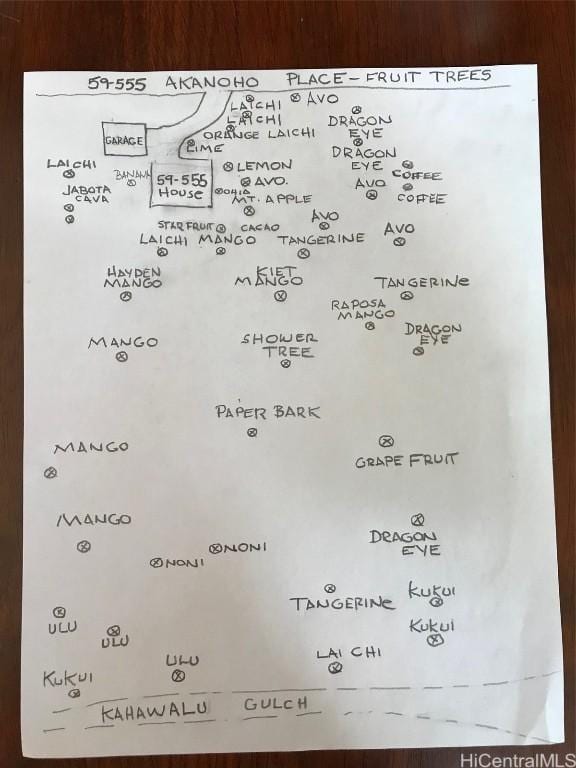 59-555 AKANOHO PLACE - FRUIT TREES
LAICHI
AVO
LAICHI
DRAGON
EYE
ORANGE LAICHI
GARAGE
LIME
DRAGON
EYE
LAICHI
BANANA
59-555
HOUSE
LEMON
COFFEE
JABOTA
CAVA
AVO.
AVO
OHIA
MT. APPLE
COFFEE
AVO
STAR FRUIT
CACAO
AVO
LAICHI
MANGO
TANGERINE
HAYDEN
MANGO
KIET
MANGO
TANGERINE
RAPOSA
MANGO
DRAGON
EYE
MANGO
SHOWER
TREE
PAPER BARK
MANGO
GRAPE FRUIT
MANGO
DRAGON
EYE
NONI
NONI
TANGERINE
KUKUI
ULU
ULU
KUKUI
LAI CHI
ULU
KUKUI
KAHAWALU GULCH
HiCentralMLS